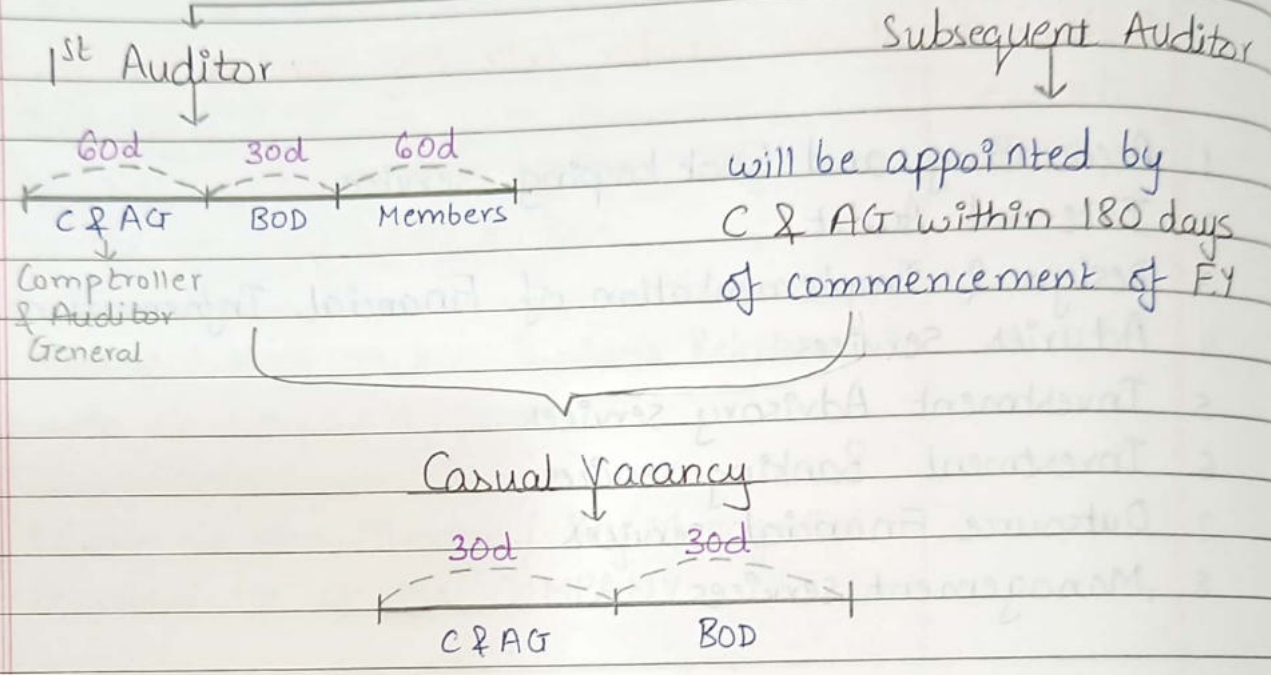 1st Auditor
Subsequent Auditor
60d 30d 60d
C & AG BOD Members
Comptroller
& Auditor
General
will be appointed by
C & AG within 180 days
of commencement of FY
Casual Vacancy
30d 30d
C & AG BOD